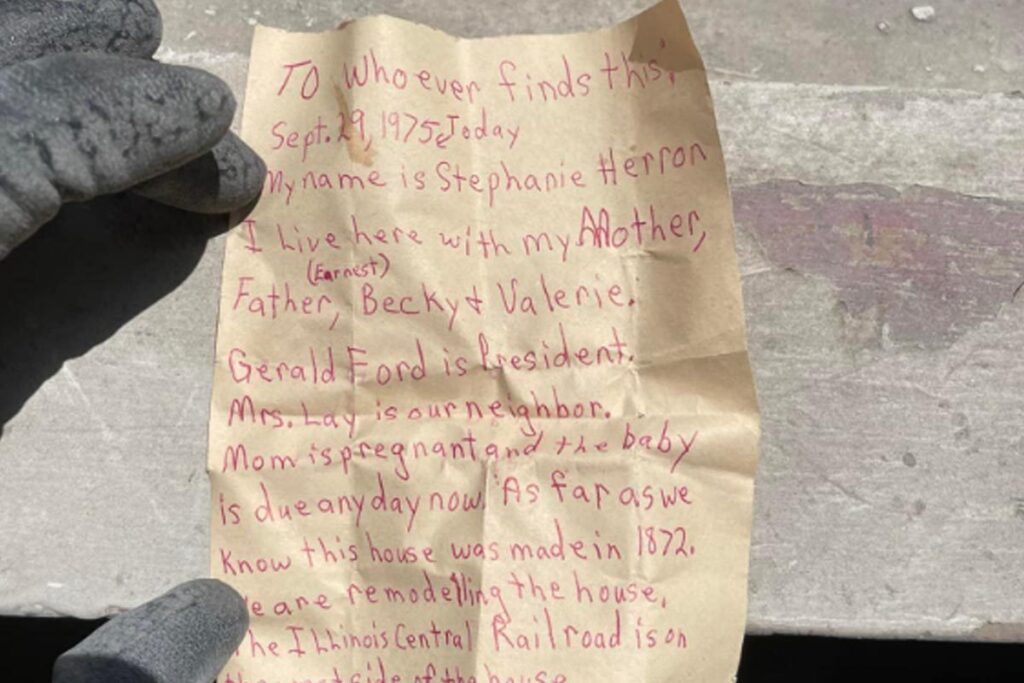 TO Whoever finds this;
Sept. 29, 1975 Today
My name is Stephanie Herron
I Live here with my Mother,
(Earnest)
Father, Becky & Valerie.
Gerald Ford is President.
Mrs. Lay is our neighbor.
Mom is pregnant and the baby
is due any day now. As far as we
Know this house was made in 1872.
We are remodelling the house,
The Illinois Central Railroad is on
side of the house